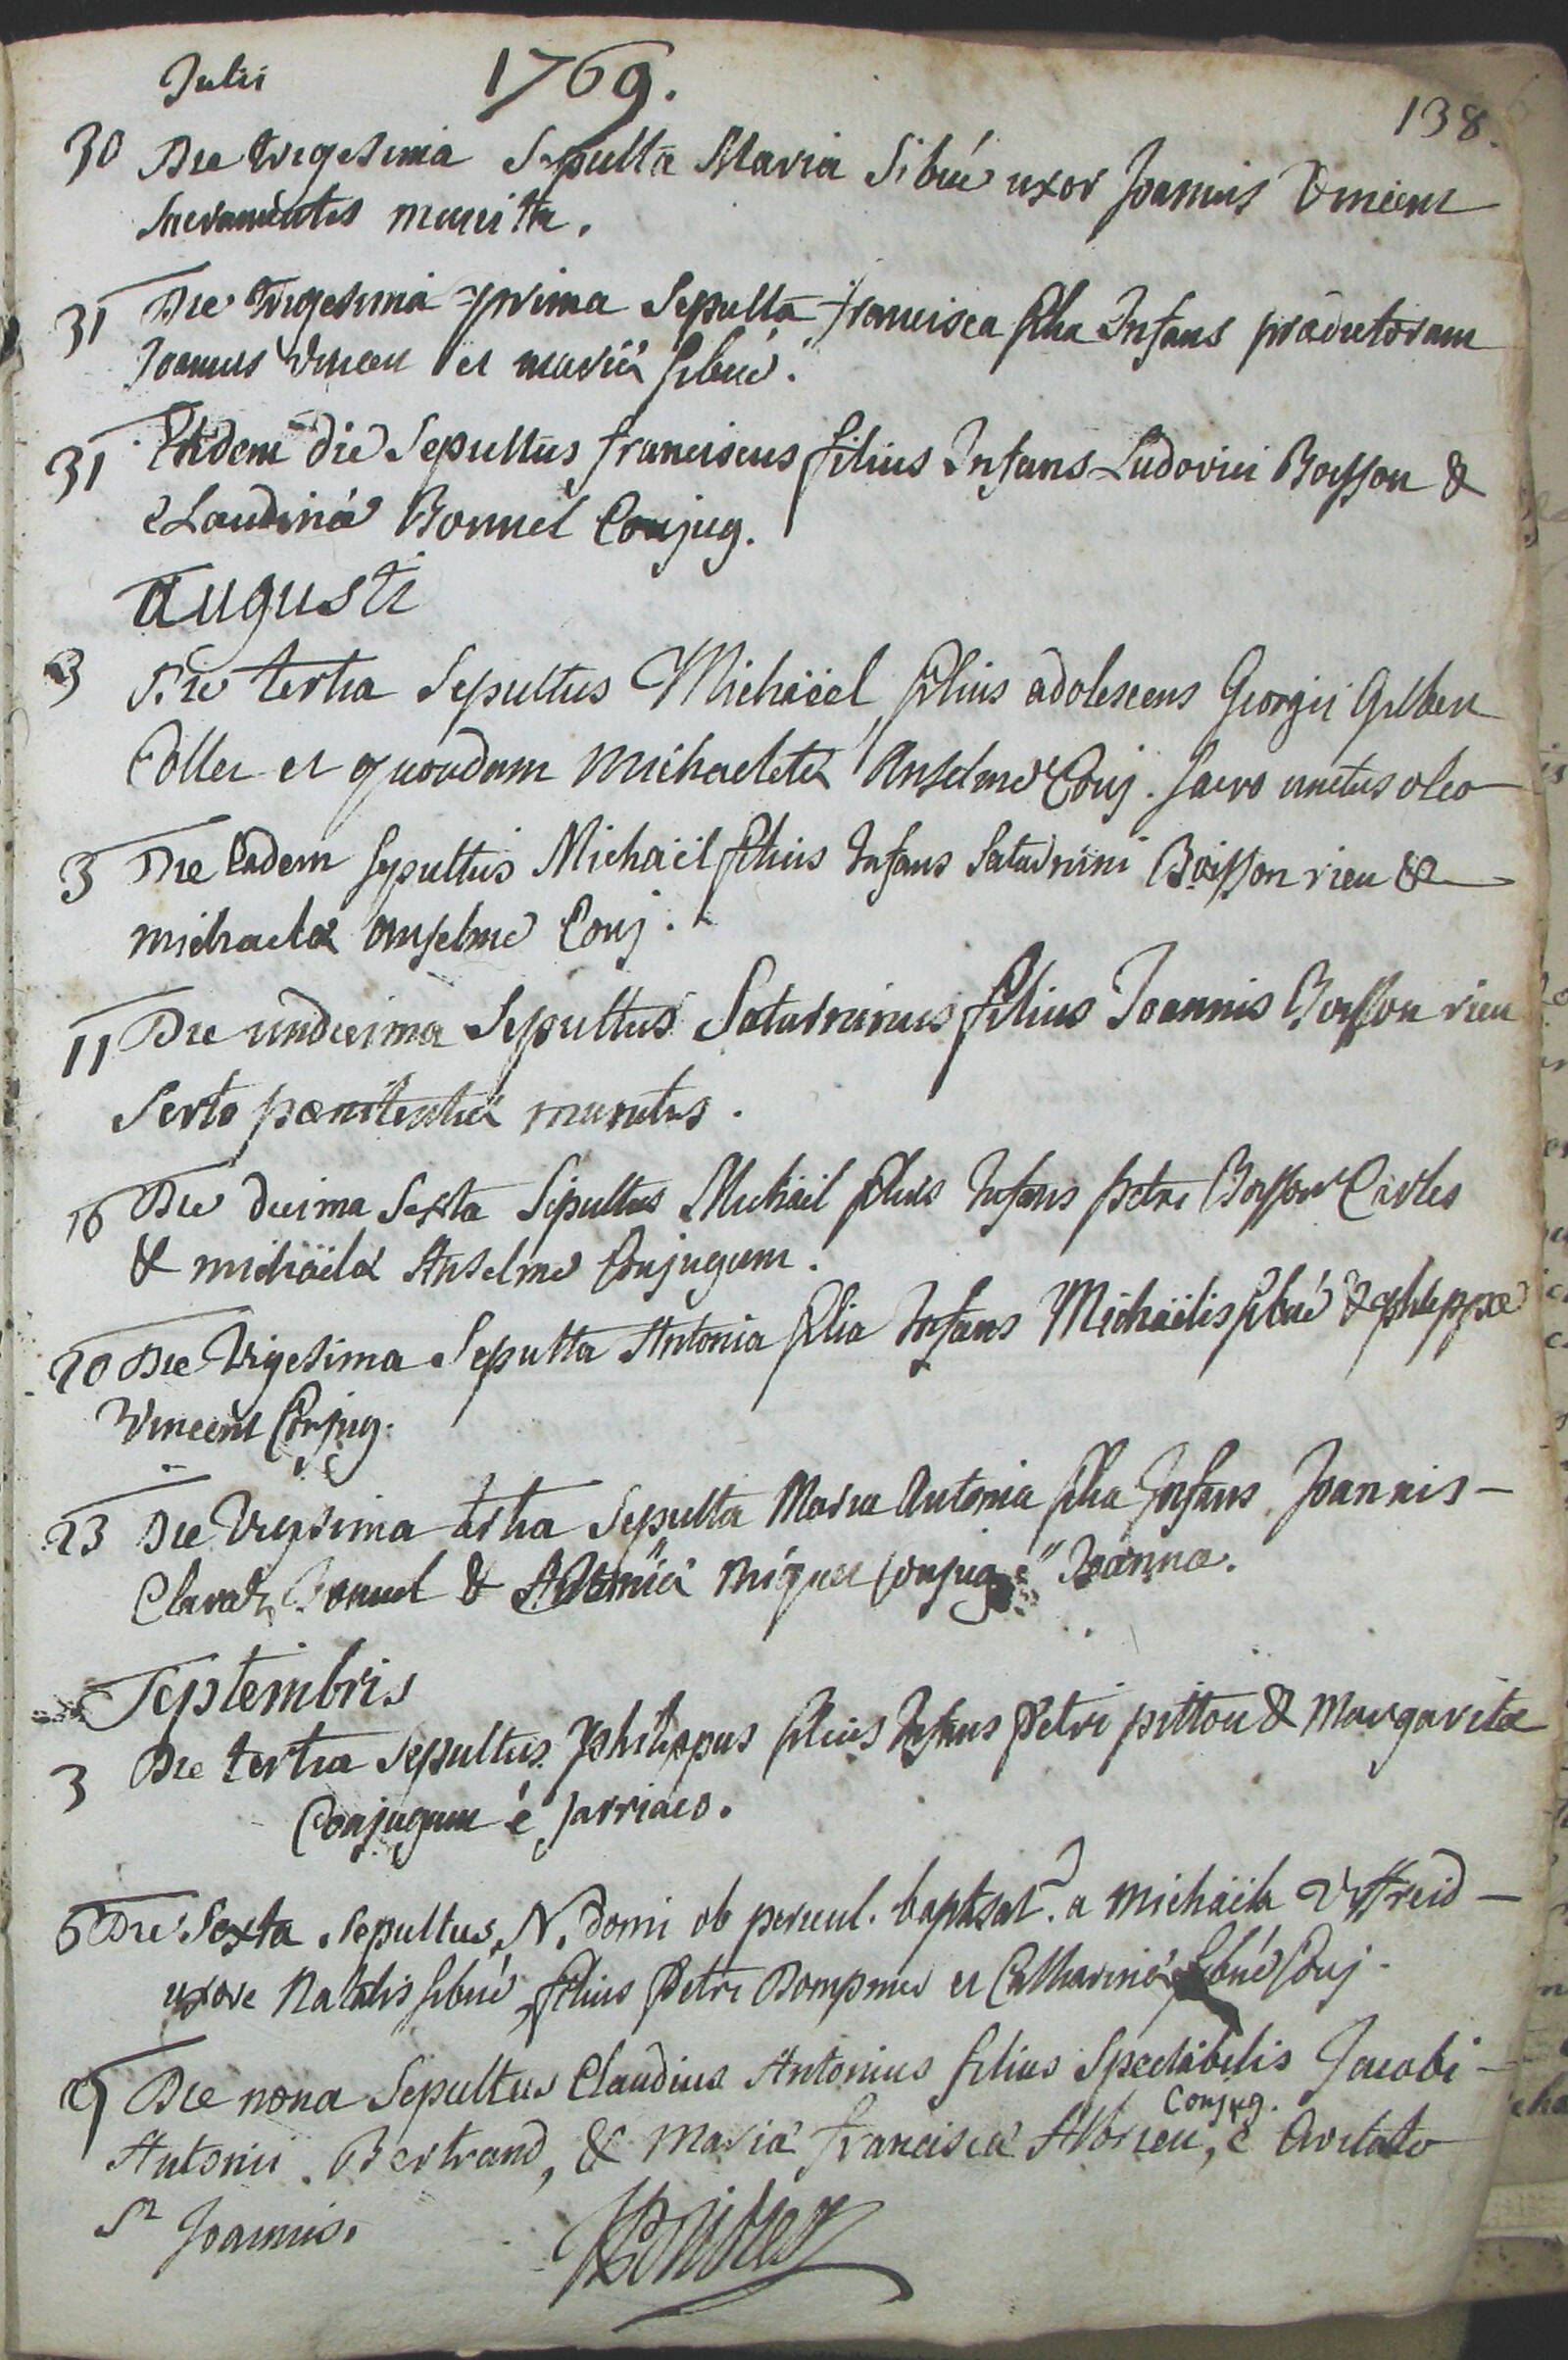 Julii 1769. 138.
30 Die trigesima Sepulta Maria Sibué uxor Joannis Vincent
Sacramentis munita.
31 Die Trigesima prima Sepulta francisca filia Infans prædictorum
Joannis Vincen et mariæ sibué.
31 Eâdem die Sepultus franciscus filius Infans Ludovici Boisson &
Claudinæ Bonnel Conjug.
augusti
3 Die tertia Sepultus Michäel filius adolescens Georgii Gilbert
Collet et quondam michaeletæ Anselme Conj. sacro unctus oleo
3 Die Eadem sepultus Michaël filius Infans Saturnini Boisson rieu &
michaelæ anselme Conj.
11 Die undecima Sepultus Saturninus filius Joannis Boisson rieu
Scrto pœnitentiæ munitus.
16 Die decima Sexta Sepultus Michäel filius Infans petri Boisson Carles
& michäelæ Anselme Conjugum.
20 Die Vigesima Sepulta Antonia filia Infans Michäelis sibué & philippæ
Vincent Conjug.
23 Die Vigesima tertia Sepulta Maria Antonia filia Infans Joannis
Bonnel & Antoniæ Conjug. è Joanna.
Septembris
3 Die tertia Sepultus philippus filius Infans Petri pitton & Margaritæ
Conjugum è Jarriaco.
6 Die Sexta Sepultus N. domi ob pericul. baptisat. a michäela Uffreid
uxore Natalis sibué, filius Petri Dompmé et Catharinæ sibué Conj.
9 Die nona Sepultus Claudius Antonius filius Spectabilis Jacobi
Conjug.
Antonii Bertrand, & mariæ franciscæ è Civitate
Sti Joannis.